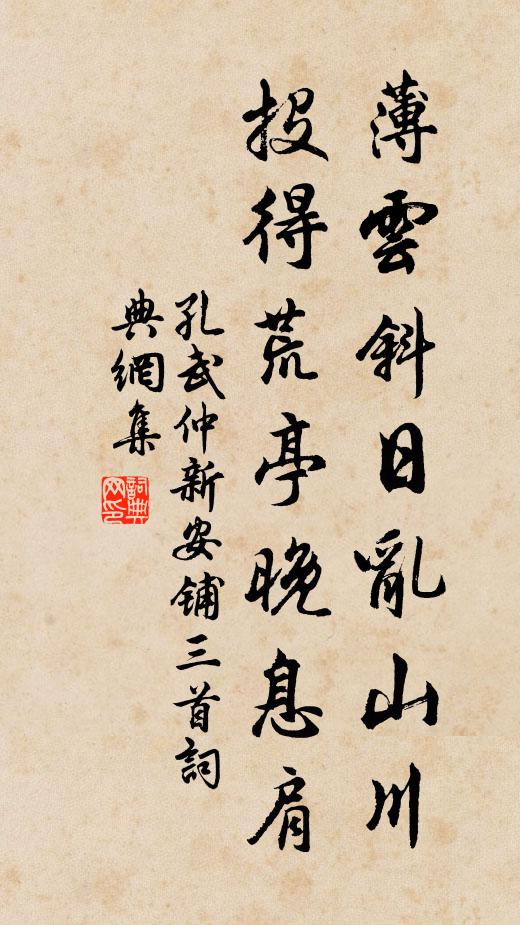 薄雲斜日亂山川
投得荒亭晚息肩
孔武仲新安鋪三首詞
典網集
詞典
网印